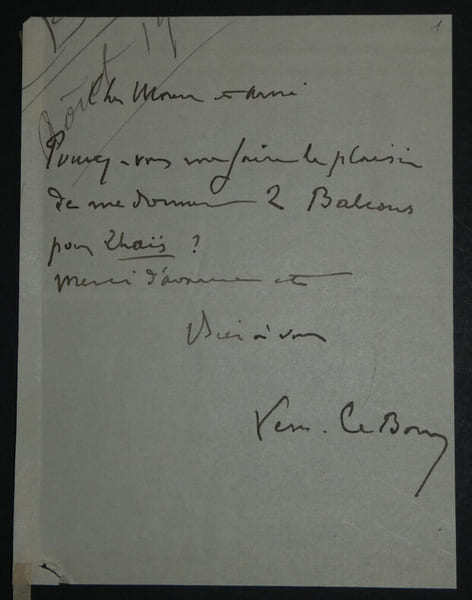 1
Boît 19
Cher Monsieur et ami
Pouvez-vous me faire le plaisir
de me donner 2 Balcons
pour Thaïs ?
Merci d'avance et
Bien à vous
Le Bon